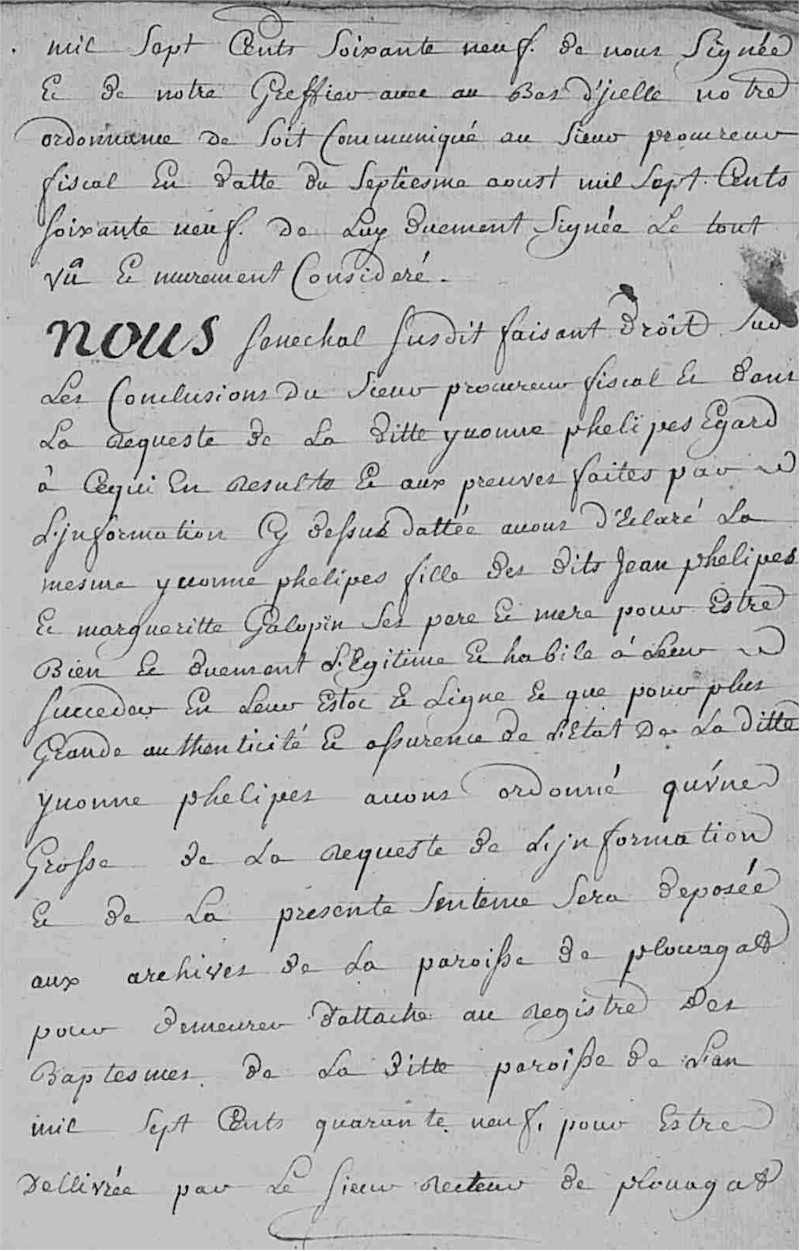 mil Sept Cents Soixante neuf. de nous Signée
Et de notre Greffier avec au Bas d'jcelle notre
ordonnance de Soit Communiqué au Sieur procureur
fiscal En datte du Septiesme aoust mil Sept. Cents
soixante neuf. de Luy duement Signée Le tout
vû Et murement Consideré.
NOUS Senechal Susdit faisant droit Sur
Les Conclusions du Sieur procureur fiscal Et dans
La Requeste de La ditte yvonne phelipes Egard
à Cequi En Resulte Et aux preuves faites par
L'jnformation Cy dessus dattée avons d'Eclaré La
mesme yvonne phelipes fille des dits Jean phelipes
Et margueritte Galopin Ses pere Et mere pour Estre
Bien Et duement L'Egitime Et habile à Leur
succeder En Leur Estoc Et Ligne Et que pour plus
Grande authenticité Et assurence de L'Etat De La ditte
yvonne phelipes avons ordonné qu'vne
Grosse de La Requeste de L'jnformation
Et de La presente Sentence Sera deposée
aux archives de La paroisse de plouagat
pour demeurer d'attache au Registre des
Baptesmes de La ditte paroisse de L'an
mil Sept Cents quarante neuf, pour Estre
Dellivrée par Le Sieur Recteur de plouagat